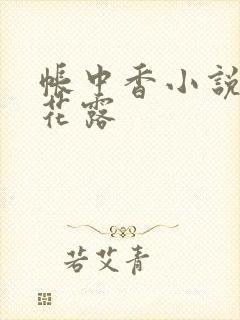 帳中香小說
花露
若艾青